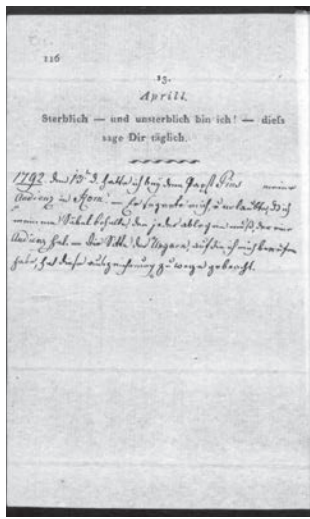 116
13.
Aprill.
Sterblich — und unsterblich bin ich! — diess
sage Dir täglich.
1792. den 13t d. hatte ich bey dem Papst Pius meine
Audienz in Rom. — Er segnete mich, u. erlaubte, daß ich
meinen Säbel behalte, den jeder ablegen muß, der eine
Audienz hat. — Die Sitte der Ungarn, auf die ich mich beruffen
habe, hat diese Auszeichnung zu wege gebracht.